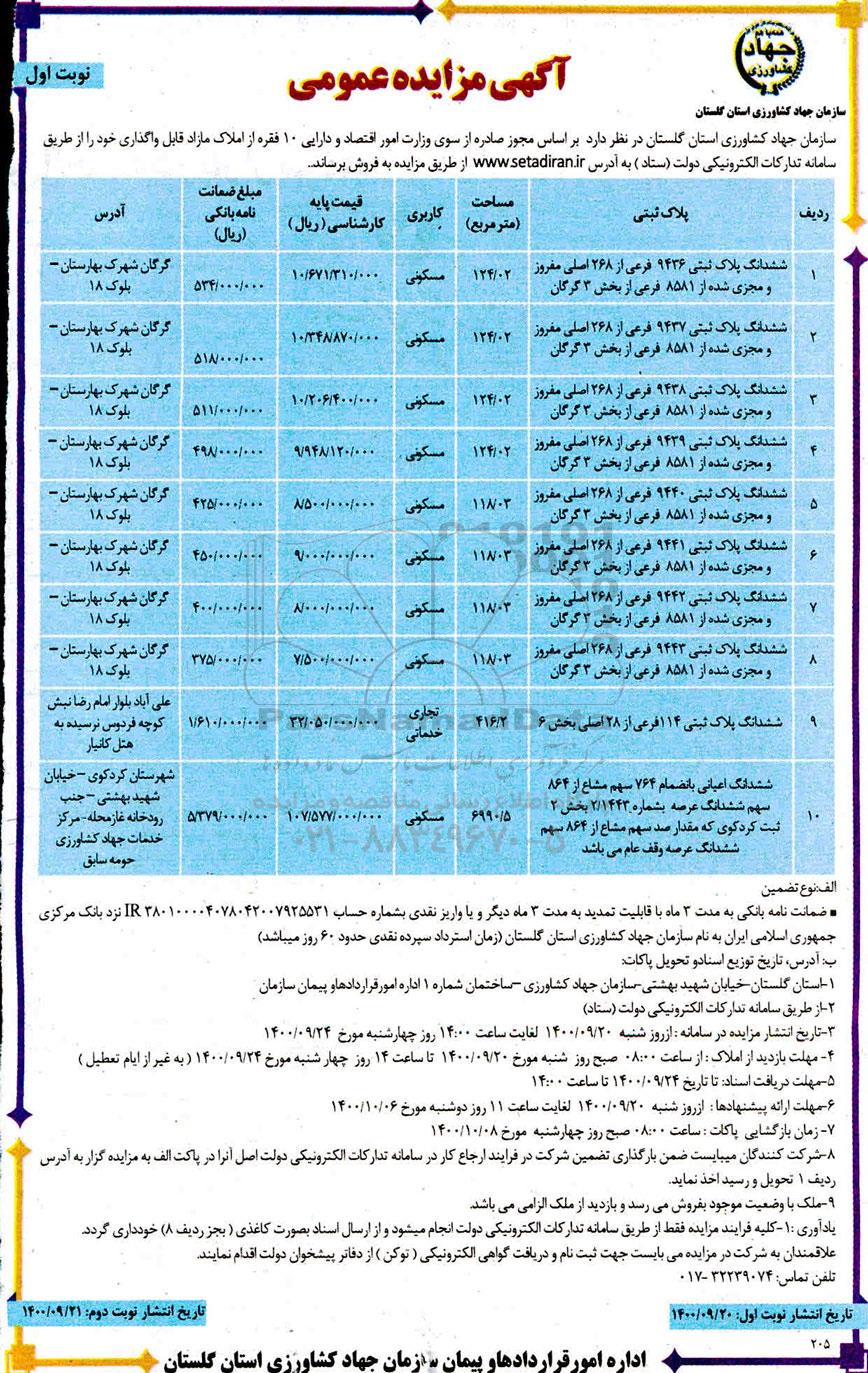 جهاد کشاورزی
سازمان جهاد کشاورزی استان گلستان
آگهی مزایده عمومی
نوبت اول
سازمان جهاد کشاورزی استان گلستان در نظر دارد بر اساس مجوز صادره از سوی وزارت امور اقتصاد و دارایی ۱۰ فقره از املاک مازاد قابل واگذاری خود را از طریق
سامانه تدارکات الکترونیکی دولت (ستاد) به آدرس www.setadiran.ir از طریق مزایده به فروش برساند..
ردیف | پلاک ثبتی | مساحت (متر مربع) | کاربری | قیمت پایه کارشناسی (ریال) | مبلغ ضمانت نامه بانکی (ریال) | آدرس
۱ | ششدانگ پلاک ثبتی ۹۴۳۶ فرعی از ۲۶۸ اصلی مفروز و مجزی شده از ۸۵۸۱ فرعی از بخش ۳ گرگان | ۱۲۴/۰۲ | مسکونی | ۱۰/۶۷۱/۳۱۰/۰۰۰ | ۵۳۴/۰۰۰/۰۰۰ | گرگان شهرک بهارستان – بلوک ۱۸
۲ | ششدانگ پلاک ثبتی ۹۴۳۷ فرعی از ۲۶۸ اصلی مفروز و مجزی شده از ۸۵۸۱ فرعی از بخش ۳ گرگان | ۱۲۴/۰۲ | مسکونی | ۱۰/۳۴۸/۸۷۰/۰۰۰ | ۵۱۸/۰۰۰/۰۰۰ | گرگان شهرک بهارستان – بلوک ۱۸
۳ | ششدانگ پلاک ثبتی ۹۴۳۸ فرعی از ۲۶۸ اصلی مفروز و مجزی شده از ۸۵۸۱ فرعی از بخش ۳ گرگان | ۱۲۴/۰۲ | مسکونی | ۱۰/۲۰۶/۴۰۰/۰۰۰ | ۵۱۱/۰۰۰/۰۰۰ | گرگان شهرک بهارستان – بلوک ۱۸
۴ | ششدانگ پلاک ثبتی ۹۴۳۹ فرعی از ۲۶۸ اصلی مفروز و مجزی شده از ۸۵۸۱ فرعی از بخش ۳ گرگان | ۱۲۴/۰۲ | مسکونی | ۹/۹۴۸/۱۲۰/۰۰۰ | ۴۹۸/۰۰۰/۰۰۰ | گرگان شهرک بهارستان – بلوک ۱۸
۵ | ششدانگ پلاک ثبتی ۹۴۴۰ فرعی از ۲۶۸ اصلی مفروز و مجزی شده از ۸۵۸۱ فرعی از بخش ۳ گرگان | ۱۱۸/۰۳ | مسکونی | ۸/۵۰۰/۰۰۰/۰۰۰ | ۴۲۵/۰۰۰/۰۰۰ | گرگان شهرک بهارستان – بلوک ۱۸
۶ | ششدانگ پلاک ثبتی ۹۴۴۱ فرعی از ۲۶۸ اصلی مفروز و مجزی شده از ۸۵۸۱ فرعی از بخش ۳ گرگان | ۱۱۸/۰۳ | مسکونی | ۹/۰۰۰/۰۰۰/۰۰۰ | ۴۵۰/۰۰۰/۰۰۰ | گرگان شهرک بهارستان – بلوک ۱۸
۷ | ششدانگ پلاک ثبتی ۹۴۴۲ فرعی از ۲۶۸ اصلی مفروز و مجزی شده از ۸۵۸۱ فرعی از بخش ۳ گرگان | ۱۱۸/۰۳ | مسکونی | ۸/۰۰۰/۰۰۰/۰۰۰ | ۴۰۰/۰۰۰/۰۰۰ | گرگان شهرک بهارستان – بلوک ۱۸
۸ | ششدانگ پلاک ثبتی ۹۴۴۳ فرعی از ۲۶۸ اصلی مفروز و مجزی شده از ۸۵۸۱ فرعی از بخش ۳ گرگان | ۱۱۸/۰۳ | مسکونی | ۷/۵۰۰/۰۰۰/۰۰۰ | ۳۷۵/۰۰۰/۰۰۰ | گرگان شهرک بهارستان – بلوک ۱۸
۹ | ششدانگ پلاک ثبتی ۱۱۴فرعی از ۲۸ اصلی بخش ۶ | ۴۱۶/۲ | تجاری خدماتی | ۳۲/۰۵۰/۰۰۰/۰۰۰ | ۱/۶۱۰/۰۰۰/۰۰۰ | علی آباد بلوار امام رضا نبش کوچه فردوس نرسیده به هتل کانیار
۱۰ | ششدانگ اعیانی بانضمام ۷۶۴ سهم مشاع از ۸۶۴ سهم ششدانگ عرصه بشماره ۲/۱۴۴۳ بخش ۲ ثبت کردکوی که مقدار صد سهم مشاع از ۸۶۴ سهم ششدانگ عرصه وقف عام می باشد | ۶۹۹۰/۵ | مسکونی | ۱۰۷/۵۷۷/۰۰۰/۰۰۰ | ۵/۳۷۹/۰۰۰/۰۰۰ | شهرستان کردکوی –خیابان شهید بهشتی –جنب رودخانه غازمحله- مرکز خدمات جهاد کشاورزی حومه سابق
الف:نوع تضمین
▪ ضمانت نامه بانکی به مدت ۳ ماه با قابلیت تمدید به مدت ۳ ماه دیگر و یا واریز نقدی بشماره حساب IR ۳۸۰۱۰۰۰۰۴۰۷۸۰۴۲۰۰۷۹۲۵۵۳۱ نزد بانک مرکزی
جمهوری اسلامی ایران به نام سازمان جهاد کشاورزی استان گلستان (زمان استرداد سپرده نقدی حدود ۶۰ روز میباشد)
ب: آدرس، تاریخ توزیع اسنادو تحویل پاکات:
۱-استان گلستان-خیابان شهید بهشتی-سازمان جهاد کشاورزی –ساختمان شماره ۱ اداره امورقراردادهاو پیمان سازمان
۲-از طریق سامانه تدارکات الکترونیکی دولت (ستاد)
۳-تاریخ انتشار مزایده در سامانه : ازروز شنبه ۱۴۰۰/۰۹/۲۰ لغایت ساعت ۱۴:۰۰ روز چهارشنبه مورخ ۱۴۰۰/۰۹/۲۴
۴- مهلت بازدید از املاک : از ساعت ۰۸:۰۰ صبح روز شنبه مورخ ۱۴۰۰/۰۹/۲۰ تا ساعت ۱۴ روز چهار شنبه مورخ ۱۴۰۰/۰۹/۲۴ ( به غیر از ایام تعطیل )
۵-مهلت دریافت اسناد: تا تاریخ ۱۴۰۰/۰۹/۲۴ تا ساعت ۱۴:۰۰
۶-مهلت ارائه پیشنهادها : ازروز شنبه ۱۴۰۰/۰۹/۲۰ لغایت ساعت ۱۱ روز دوشنبه مورخ ۱۴۰۰/۱۰/۰۶
۷- زمان بازگشایی پاکات : ساعت ۰۸:۰۰ صبح روز چهارشنبه مورخ ۱۴۰۰/۱۰/۰۸
۸-شرکت کنندگان میبایست ضمن بارگذاری تضمین شرکت در فرایند ارجاع کار در سامانه تدارکات الکترونیکی دولت اصل آنرا در پاکت الف به مزایده گزار به آدرس
ردیف ۱ تحویل و رسید اخذ نماید.
۹-ملک با وضعیت موجود بفروش می رسد و بازدید از ملک الزامی می باشد.
یادآوری :۱-کلیه فرایند مزایده فقط از طریق سامانه تدارکات الکترونیکی دولت انجام میشود و از ارسال اسناد بصورت کاغذی ( بجز ردیف ۸) خودداری گردد.
علاقمندان به شرکت در مزایده می بایست جهت ثبت نام و دریافت گواهی الکترونیکی ( توکن ) از دفاتر پیشخوان دولت اقدام نمایند.
تلفن تماس: ۳۲۲۳۹۰۷۴ -۰۱۷
تاریخ انتشار نوبت اول: ۱۴۰۰/۰۹/۲۰
تاریخ انتشار نوبت دوم: ۱۴۰۰/۰۹/۲۱
۲۰۵
اداره امورقراردادهاو پیمان سازمان جهاد کشاورزی استان گلستان
ParsNamadData
۰۲۱-۸۸۳۴۹۶۷۰-۵